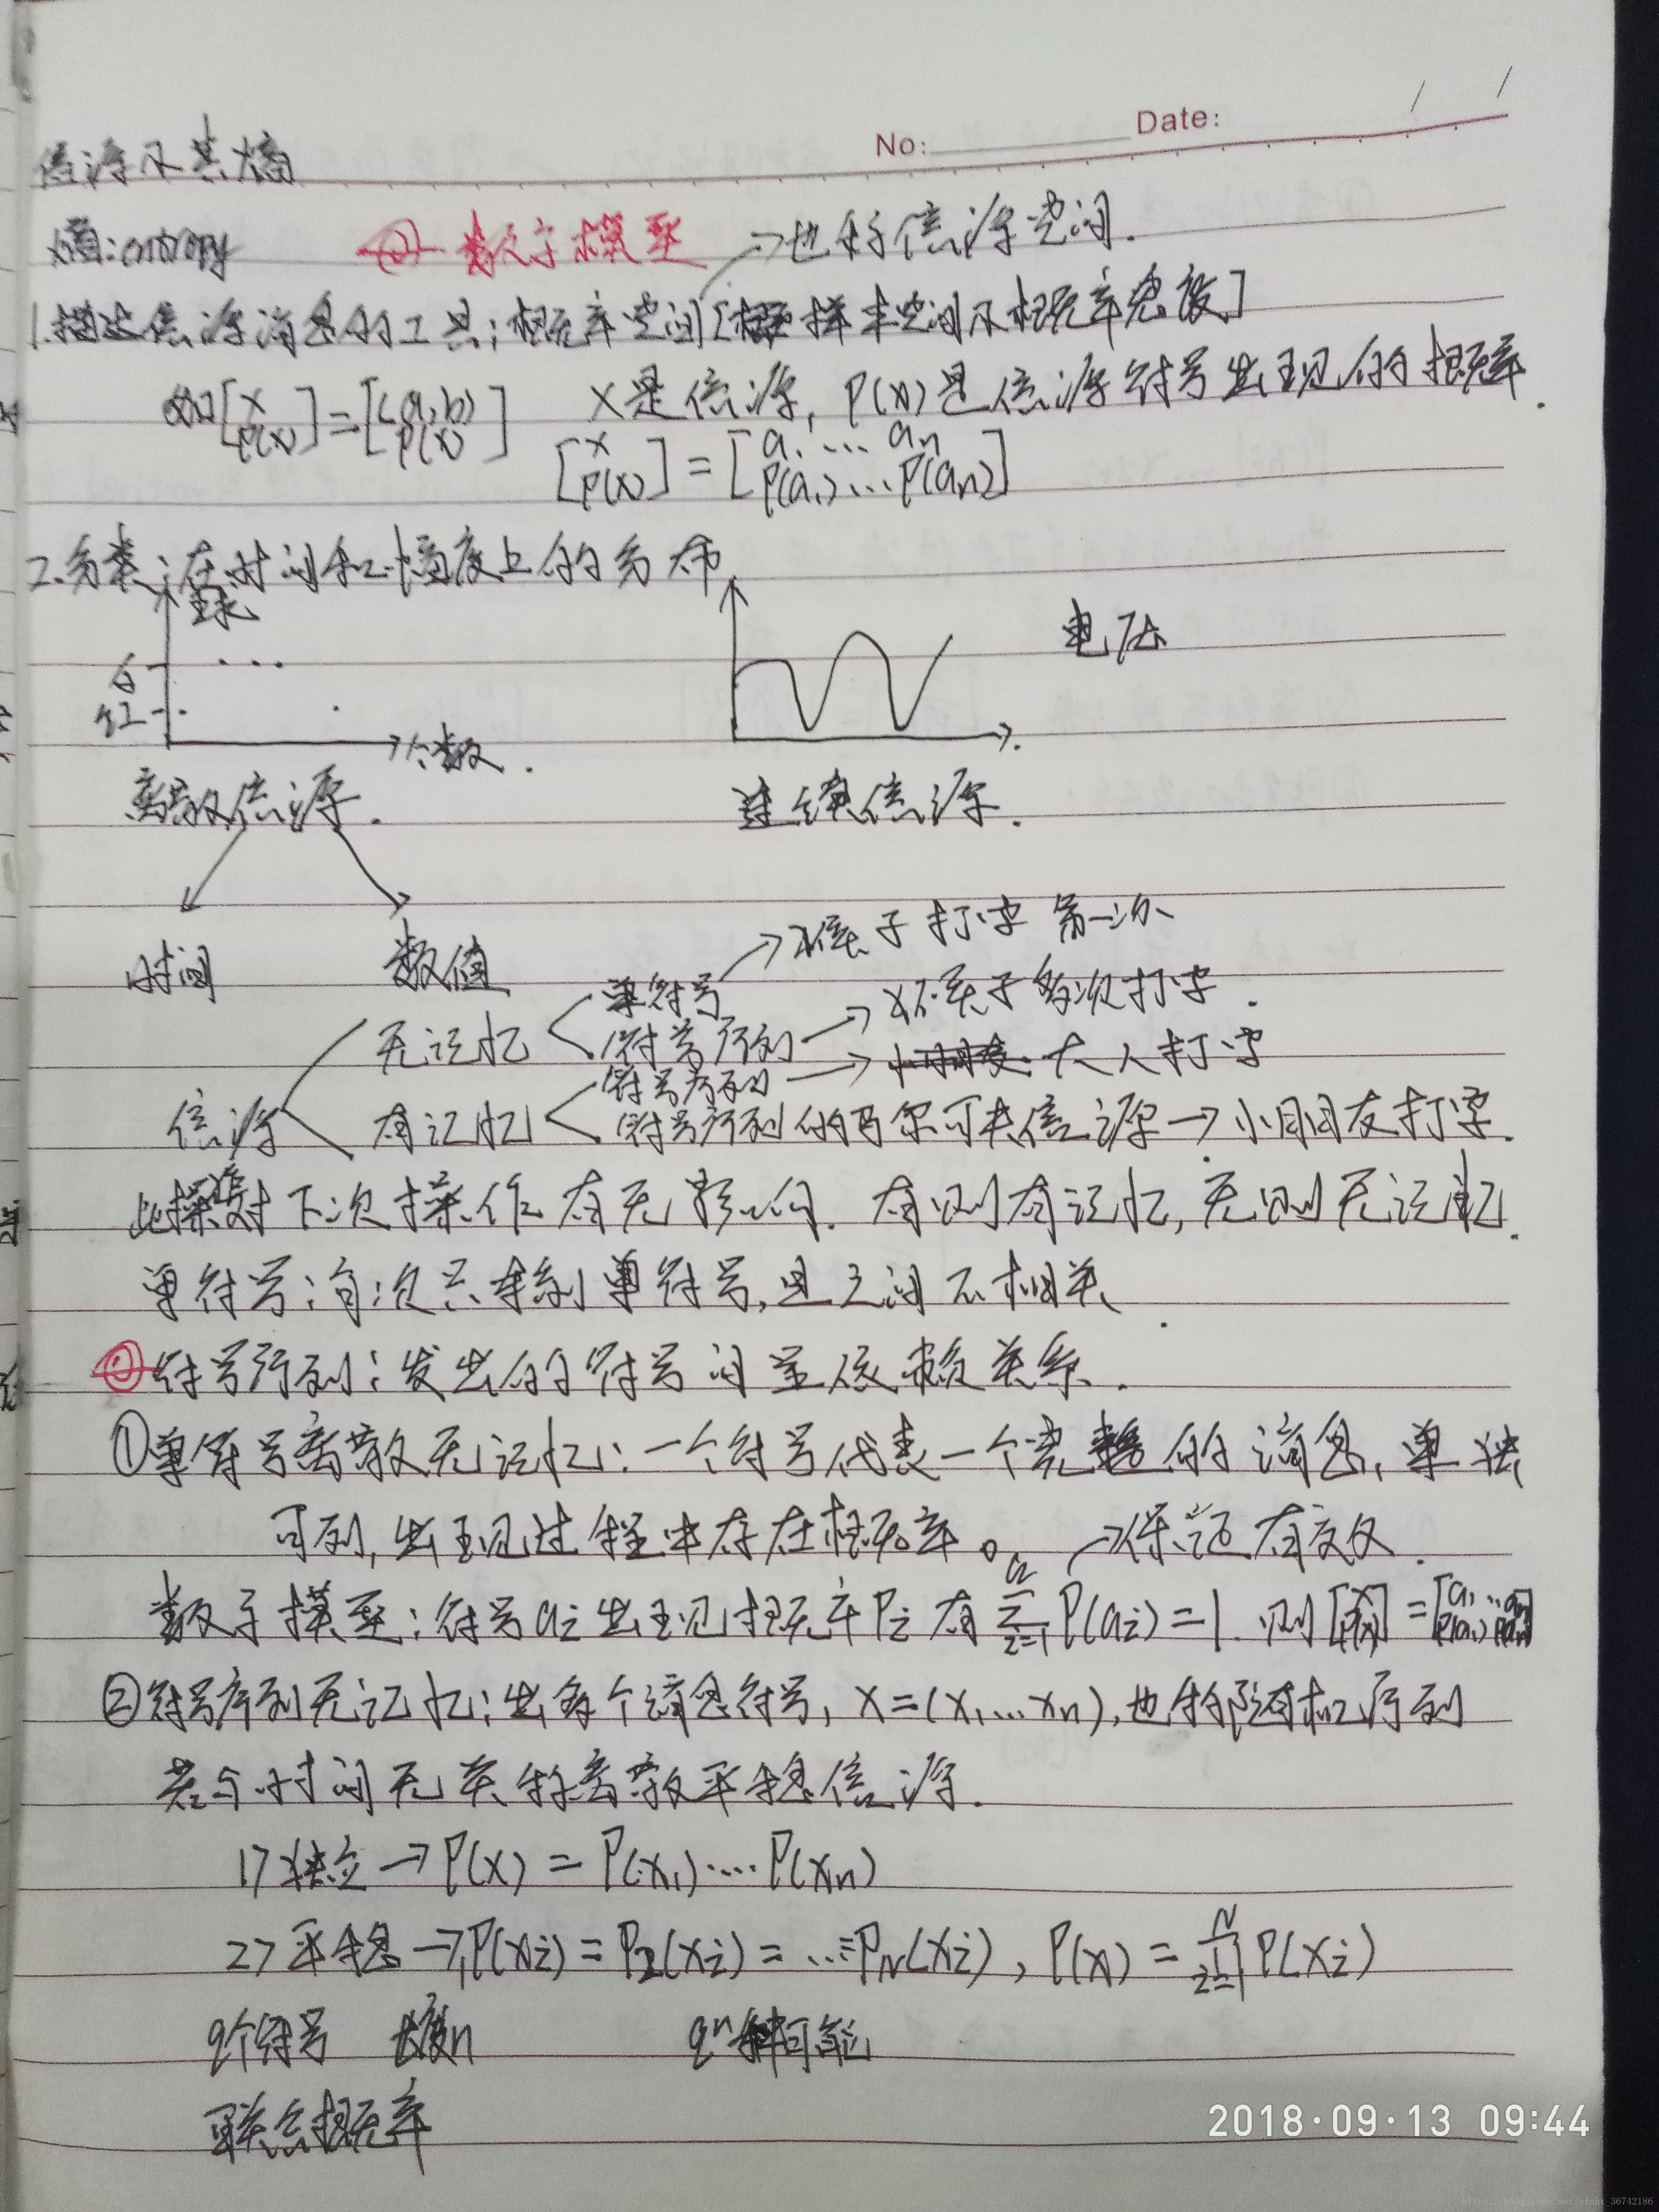 No: Date: / /
信源及其熵
熵: entropy
数学模型 →也称信源空间.
1.描述信源消息的工具: 概率空间[样本空间及概率密度]
如[X P(x)]=[(a,b) P(x)] X是信源, P(x)是信源符号出现的概率.
[X P(x)]=[a₁ … aₙ P(a₁)…P(aₙ)]
2.分类: 在时间和幅度上的分布
球
白
红
个数.
电压
离散信源. 连续信源.
时间 数值
单符号 → 猴子打字 第一次
无记忆 符号序列 → 猴子多次打字.
符号序列 → 大人打字
信源 有记忆 符号序列的马尔可夫信源 → 小朋友打字.
此操作对下次操作有无影响. 有则有记忆, 无则无记忆.
单符号: 每次只拿到单符号, 且之间不相关.
符号序列: 发出的符号间呈依赖关系.
①单符号离散无记忆: 一个符号代表一个完整的消息, 单独
可列, 出现过程中存在概率。 →保证有效.
数学模型: 符号aᵢ出现概率Pᵢ有 Σ P(aᵢ)=1. 则[X P(x)]=[a₁…aₙ P(a₁) P(aₙ)]
②符号序列无记忆: 出多个消息符号, X=(X₁…Xₙ), 也称随机序列
若与时间无关称离散平稳信源.
1> 独立 → P(X) = P(X₁)….P(Xₙ)
2> 平稳 → P₁(Xᵢ) = P₂(Xᵢ) = …=P_N(Xᵢ), P(X) = ∏ P(Xᵢ)
q个符号 长度n qⁿ种可能
联合概率
2018·09·13 09:44